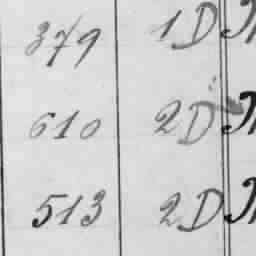 379 1D
610 2D
513 2D